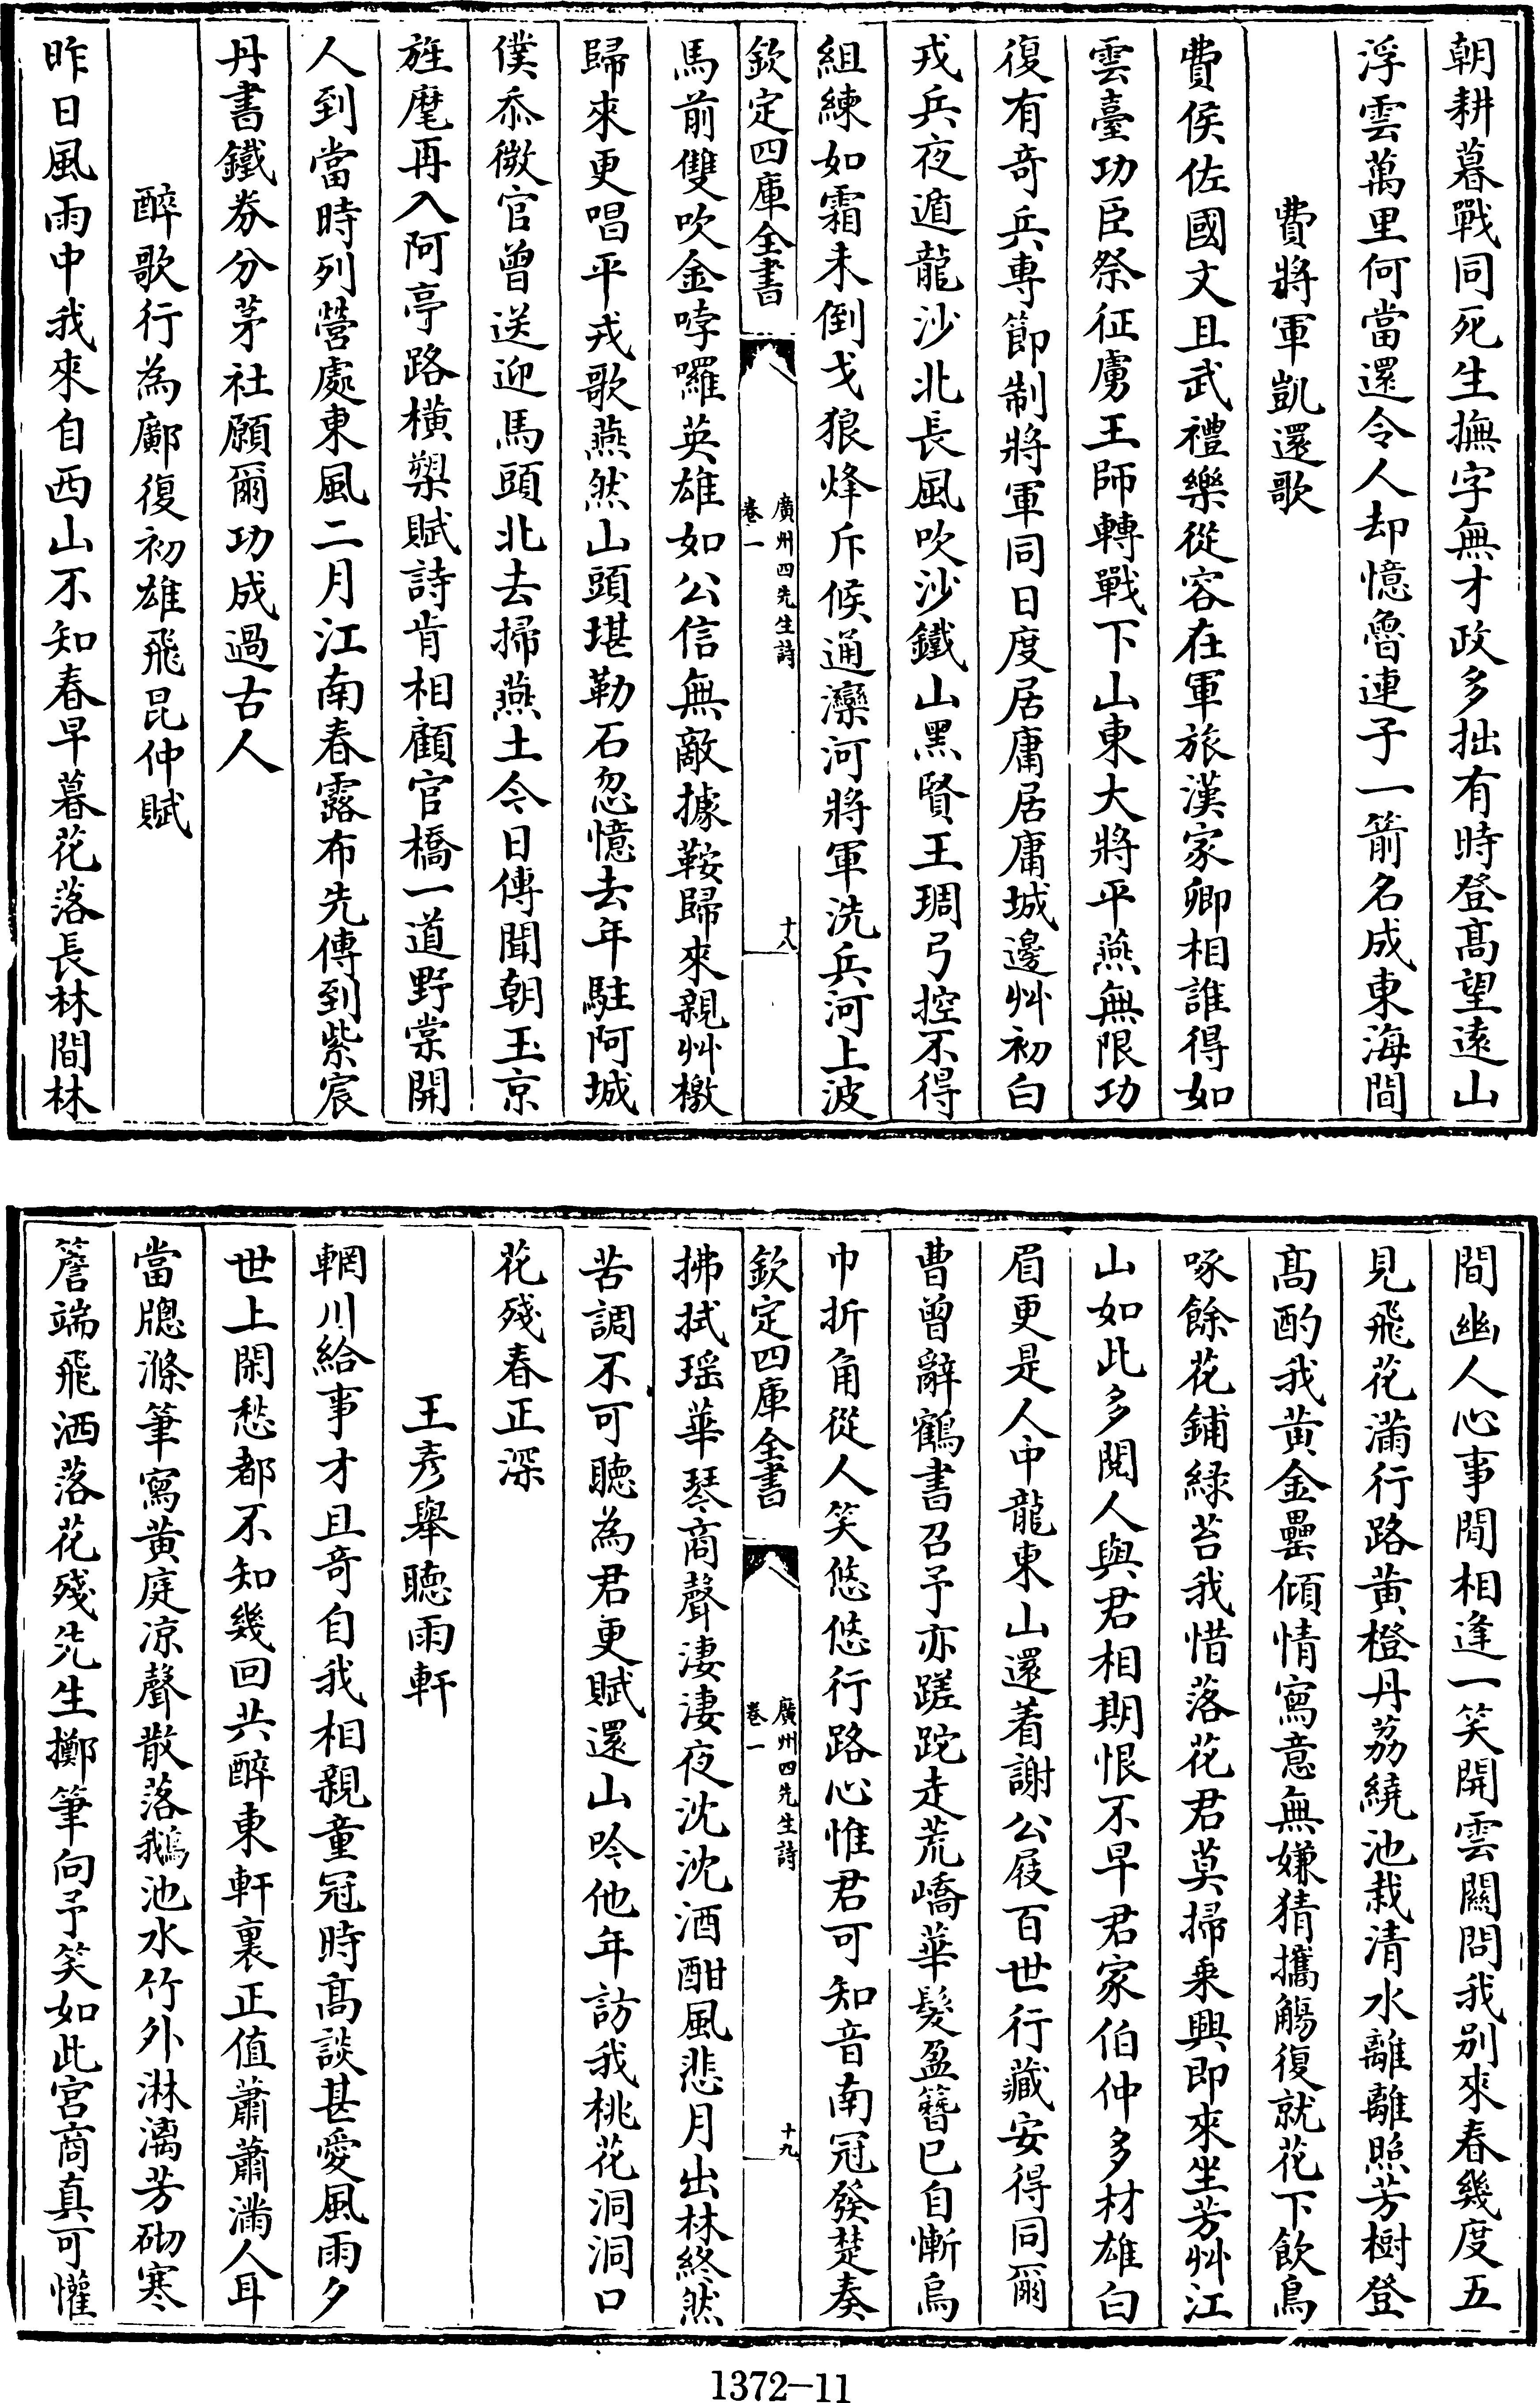 朝耕暮戰同死生撫字無才政多拙有時登髙望遠山
浮雲萬里何當還令人却憶魯連子一箭名成東海間
費將軍凱還歌
費侯佐國文且武禮樂從容在軍旅漢家卿相誰得如
雲臺功臣祭征虜王師轉戰下山東大將平燕無限功
復有竒兵専節制將軍同日度居庸居庸城邊艸初白
戎兵夜遁龍沙北長風吹沙鐵山黑賢王琱弓控不得
組練如霜未倒戈狼烽斥候通灤河將軍洗兵河上波
欽定四庫全書
廣州四先生詩
卷一
十八
馬前雙吹金哱囉英雄如公信無敵據鞍歸來親艸檄
歸來更唱平戎歌燕然山頭堪勒石忽憶去年駐阿城
僕忝微官曾送迎馬頭北去掃燕土今日傳聞朝玉京
旌麾再入阿亭路橫槊賦詩肯相顧官橋一道野棠開
人到當時列營處東風二月江南春露布先傳到紫宸
丹書鐵券分茅社願爾功成過古人
醉歌行為鄺復初雄飛昆仲賦
昨日風雨中我來自西山不知春早暮花落長林間林
間幽人心事閒相逢一笑開雲關問我别來春幾度五
見飛花滿行路黄橙丹荔繞池栽清水離離照芳樹登
髙酌我黄金罍傾情寫意無嫌猜攜觴復就花下飲鳥
啄餘花鋪緑苔我惜落花君莫掃乗興即來坐芳艸江
山如此多閱人與君相期恨不早君家伯仲多材雄白
眉更是人中龍東山還着謝公屐百世行藏安得同爾
曹曾辭鶴書召予亦蹉跎走荒嶠華髮盈簪已自慚烏
巾折角從人笑悠悠行路心惟君可知音南冠發楚奏
欽定四庫全書
廣州四先生詩
卷一
十九
拂拭瑶華琴商聲淒淒夜沈沈酒酣風悲月出林終然
苦調不可聽為君更賦還山吟他年訪我桃花洞洞口
花殘春正深
王彦舉聽雨軒
輞川給事才且竒自我相親童冠時髙談甚愛風雨夕
世上閑愁都不知幾回共醉東軒裏正值蕭蕭滿人耳
當牕滌筆寫黄庭凉聲散落鵝池水竹外淋漓芳砌寒
簷端飛洒落花殘先生擲筆向予笑如此宫商真可懽
1372-11